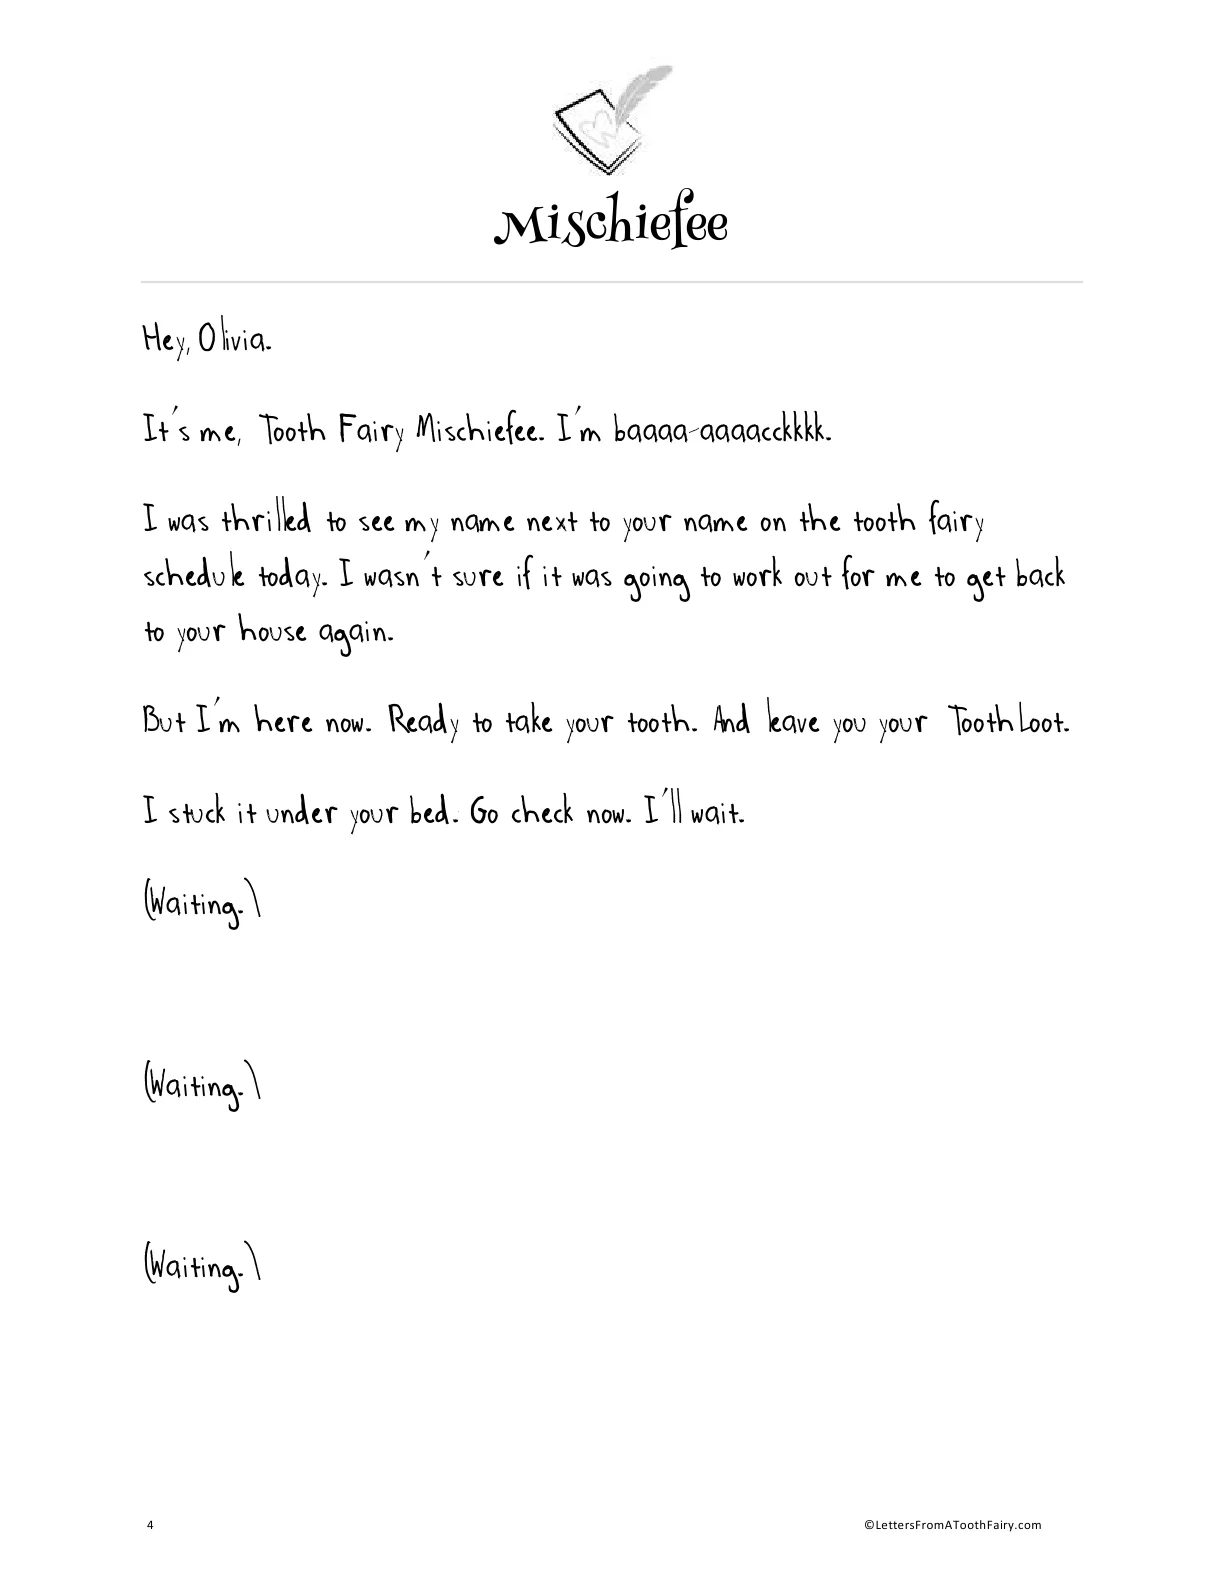 Mischiefee
Hey, Olivia.
It's me, Tooth Fairy Mischiefee. I'm baaaa-aaaacckkkk.
I was thrilled to see my name next to your name on the tooth fairy
schedule today. I wasn't sure if it was going to work out for me to get back
to your house again.
But I'm here now. Ready to take your tooth. And leave you your ToothLoot.
I stuck it under your bed. Go check now. I'll wait.
(Waiting.)
(Waiting.)
(Waiting.)
4 ©LettersFromAToothFairy.com